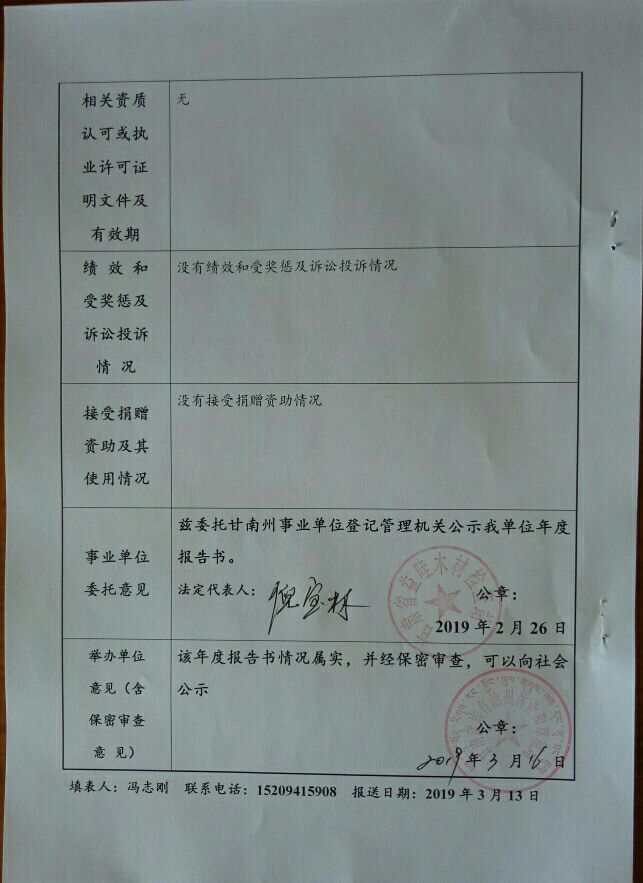 相关资质
认可或执
业许可证
明文件及
有效期
无
绩 效 和
受奖惩及
诉讼投诉
情 况
没有绩效和受奖惩及诉讼投诉情况
接受捐赠
资助及其
使用情况
没有接受捐赠资助情况
事业单位
委托意见
兹委托甘南州事业单位登记管理机关公示我单位年度
报告书。
法定代表人：倪宝林
公章：
2019 年 2 月 26 日
举办单位
意见（含
保密审查
意 见）
该年度报告书情况属实，并经保密审查，可以向社会
公示
公章：
2019 年 3 月 16 日
填表人：冯志刚 联系电话：15209415908 报送日期：2019 年 3 月 13 日